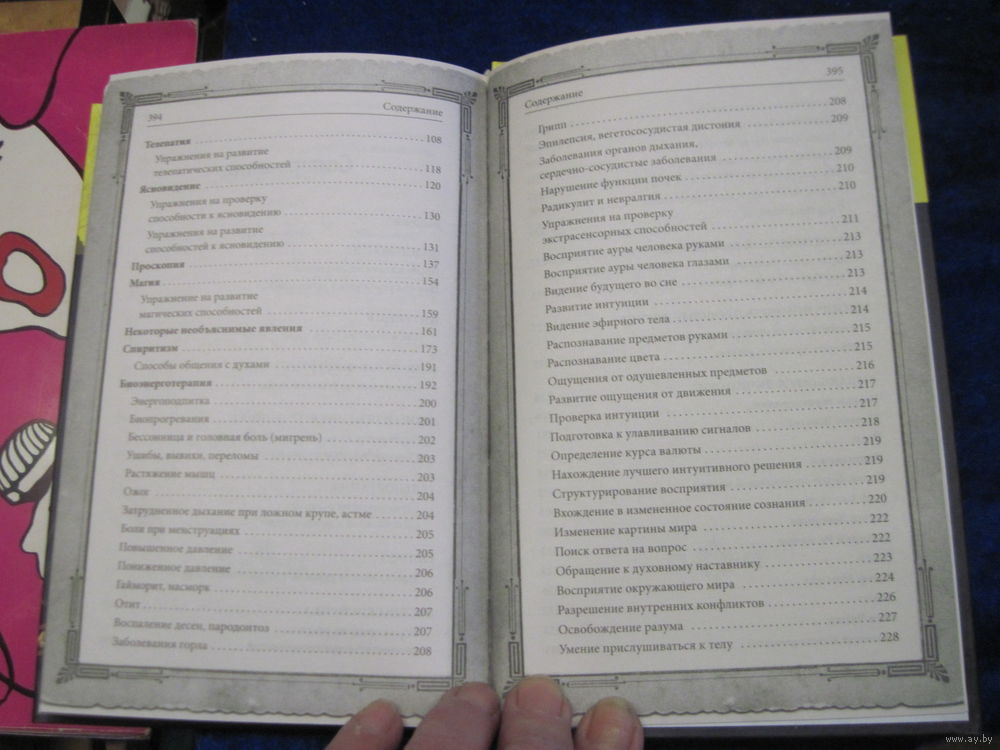 394 Содержание
Телепатия 108
Упражнения на развитие
телепатических способностей 118
Ясновидение 120
Упражнения на проверку
способности к ясновидению 130
Упражнения на развитие
способностей к ясновидению 131
Проскопия 137
Магия 154
Упражнение на развитие
магических способностей 159
Некоторые необъяснимые явления 161
Спиритизм 173
Способы общения с духами 191
Биоэнерготерапия 192
Энергоподпитка 200
Биопрогревания 201
Бессонница и головная боль (мигрень) 202
Ушибы, вывихи, переломы 203
Растяжение мышц 203
Ожог 204
Затрудненное дыхание при ложном крупе, астме 204
Боли при менструациях 205
Повышенное давление 205
Пониженное давление 206
Гайморит, насморк 206
Отит 207
Воспаление десен, пародонтоз 207
Заболевания горла 208
Содержание 395
Грипп 208
Эпилепсия, вегетососудистая дистония 209
Заболевания органов дыхания,
сердечно-сосудистые заболевания 209
Нарушение функции почек 210
Радикулит и невралгия 210
Упражнения на проверку
экстрасенсорных способностей 211
Восприятие ауры человека руками 213
Восприятие ауры человека глазами 213
Видение будущего во сне 213
Развитие интуиции 214
Видение эфирного тела 214
Распознавание предметов руками 215
Распознавание цвета 215
Ощущения от одушевленных предметов 216
Развитие ощущения от движения 217
Проверка интуиции 217
Подготовка к улавливанию сигналов 218
Определение курса валюты 219
Нахождение лучшего интуитивного решения 219
Структурирование восприятия 219
Вхождение в измененное состояние сознания 220
Изменение картины мира 222
Поиск ответа на вопрос 222
Обращение к духовному наставнику 223
Восприятие окружающего мира 224
Разрешение внутренних конфликтов 226
Освобождение разума 227
Умение прислушиваться к телу 228
www.ay.by